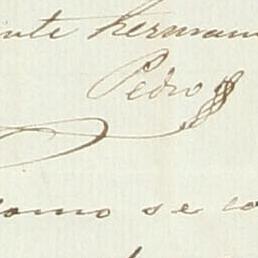 inte herman
Pedro
como se co